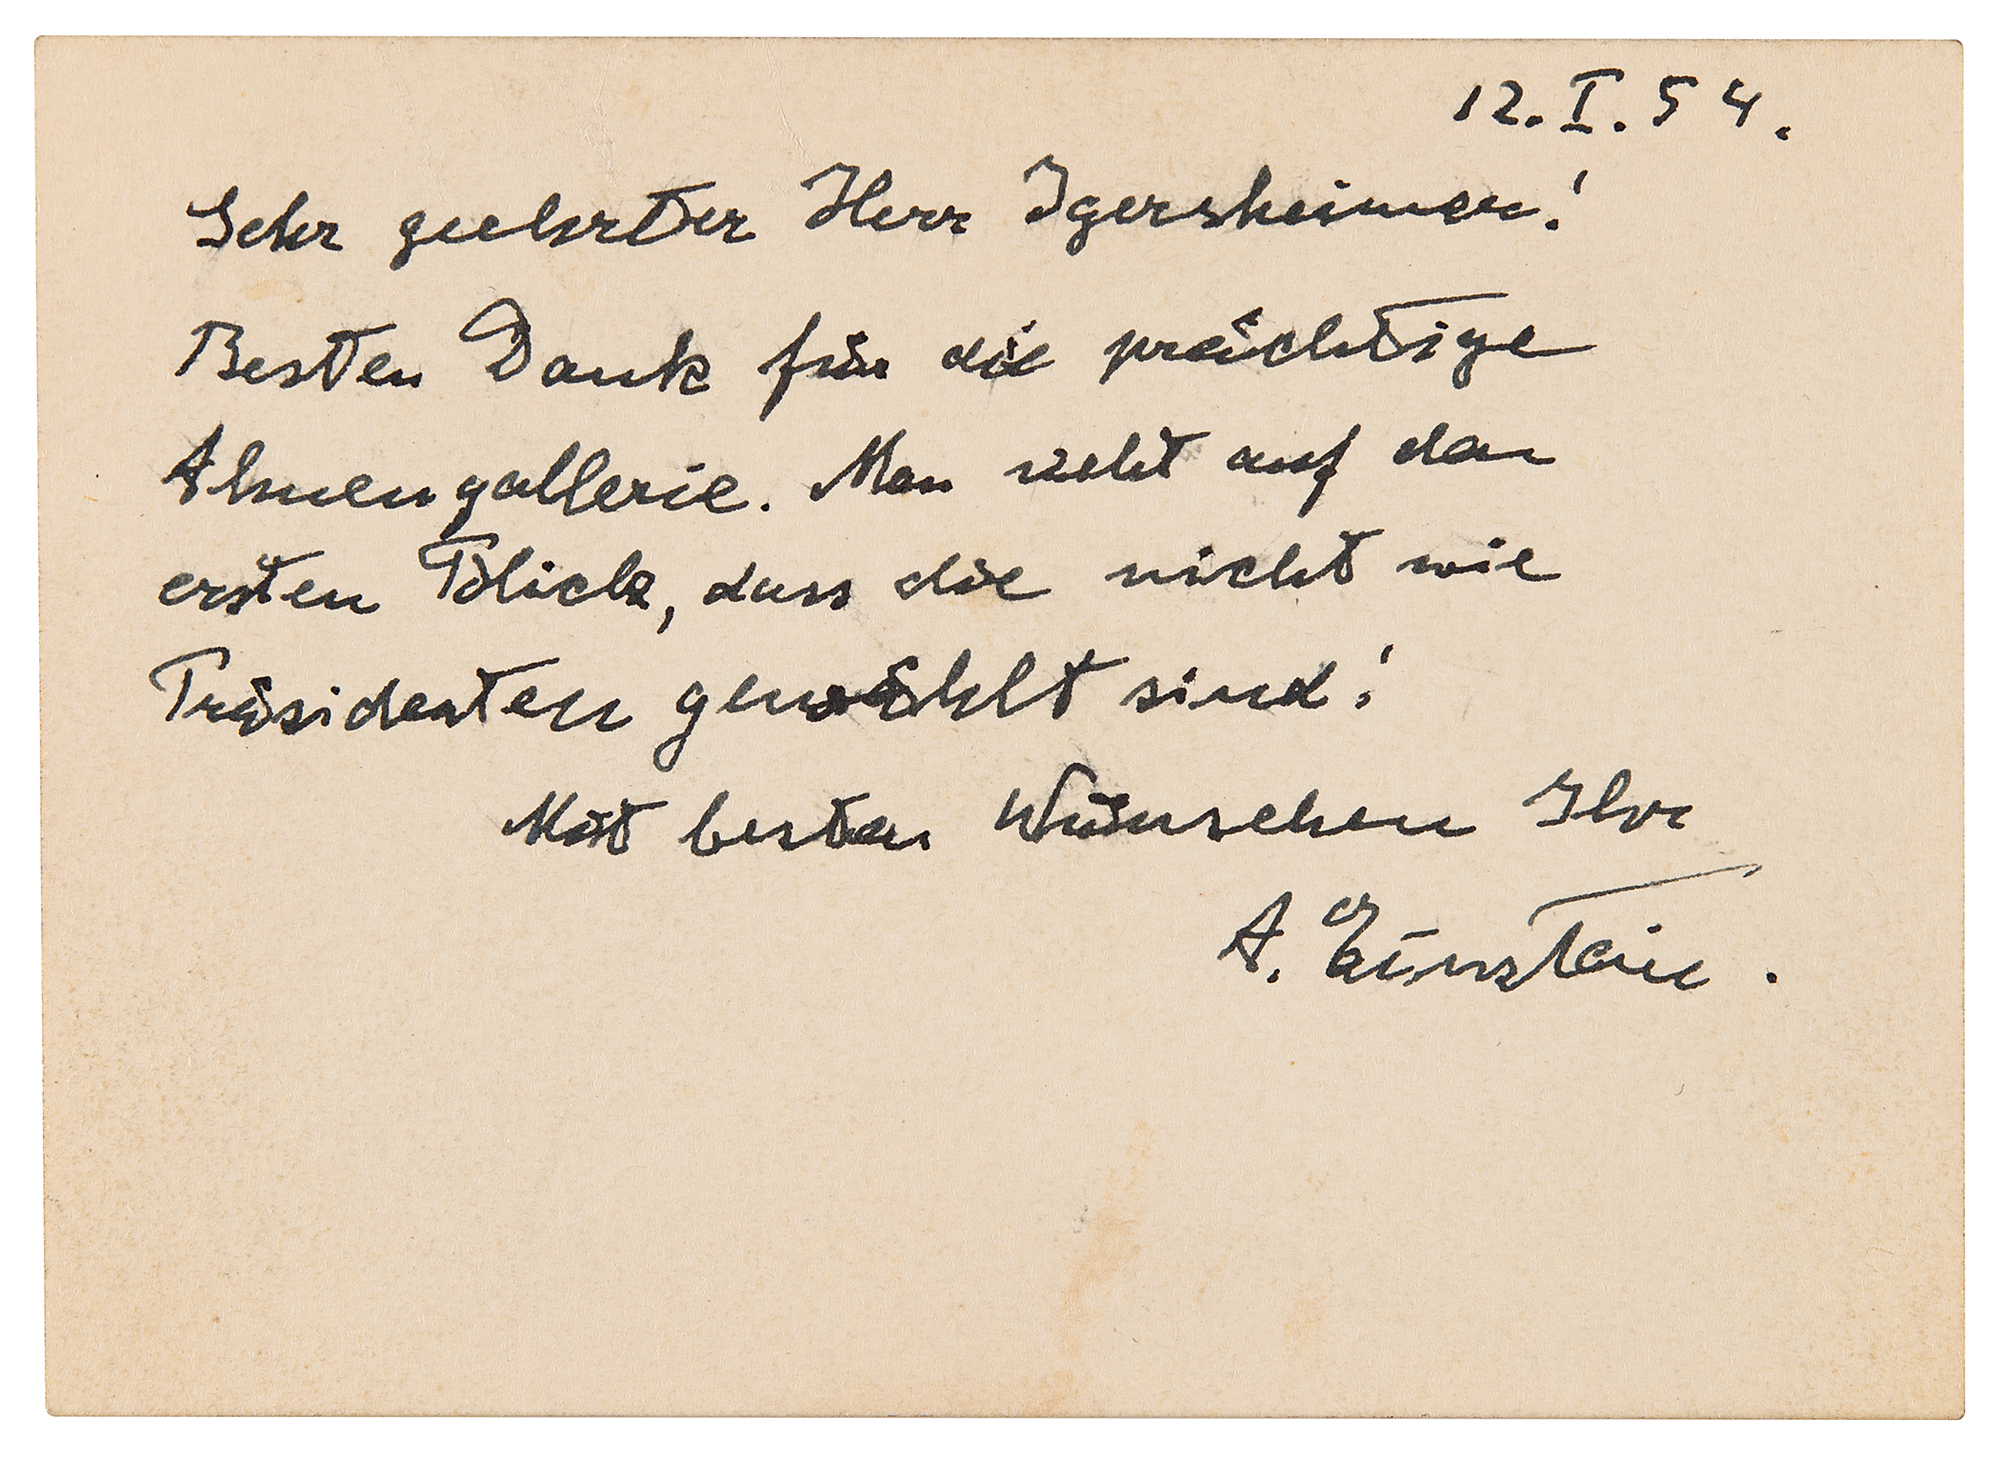 12. I. 54.
Sehr geehrter Herr Igersheimer!
Besten Dank für die prächtige
Ahnengallerie. Man sieht auf den
ersten Blick, dass die nicht wie
Präsidenten gewählt sind!
Mit besten Wünschen Ihr
A. Einstein.